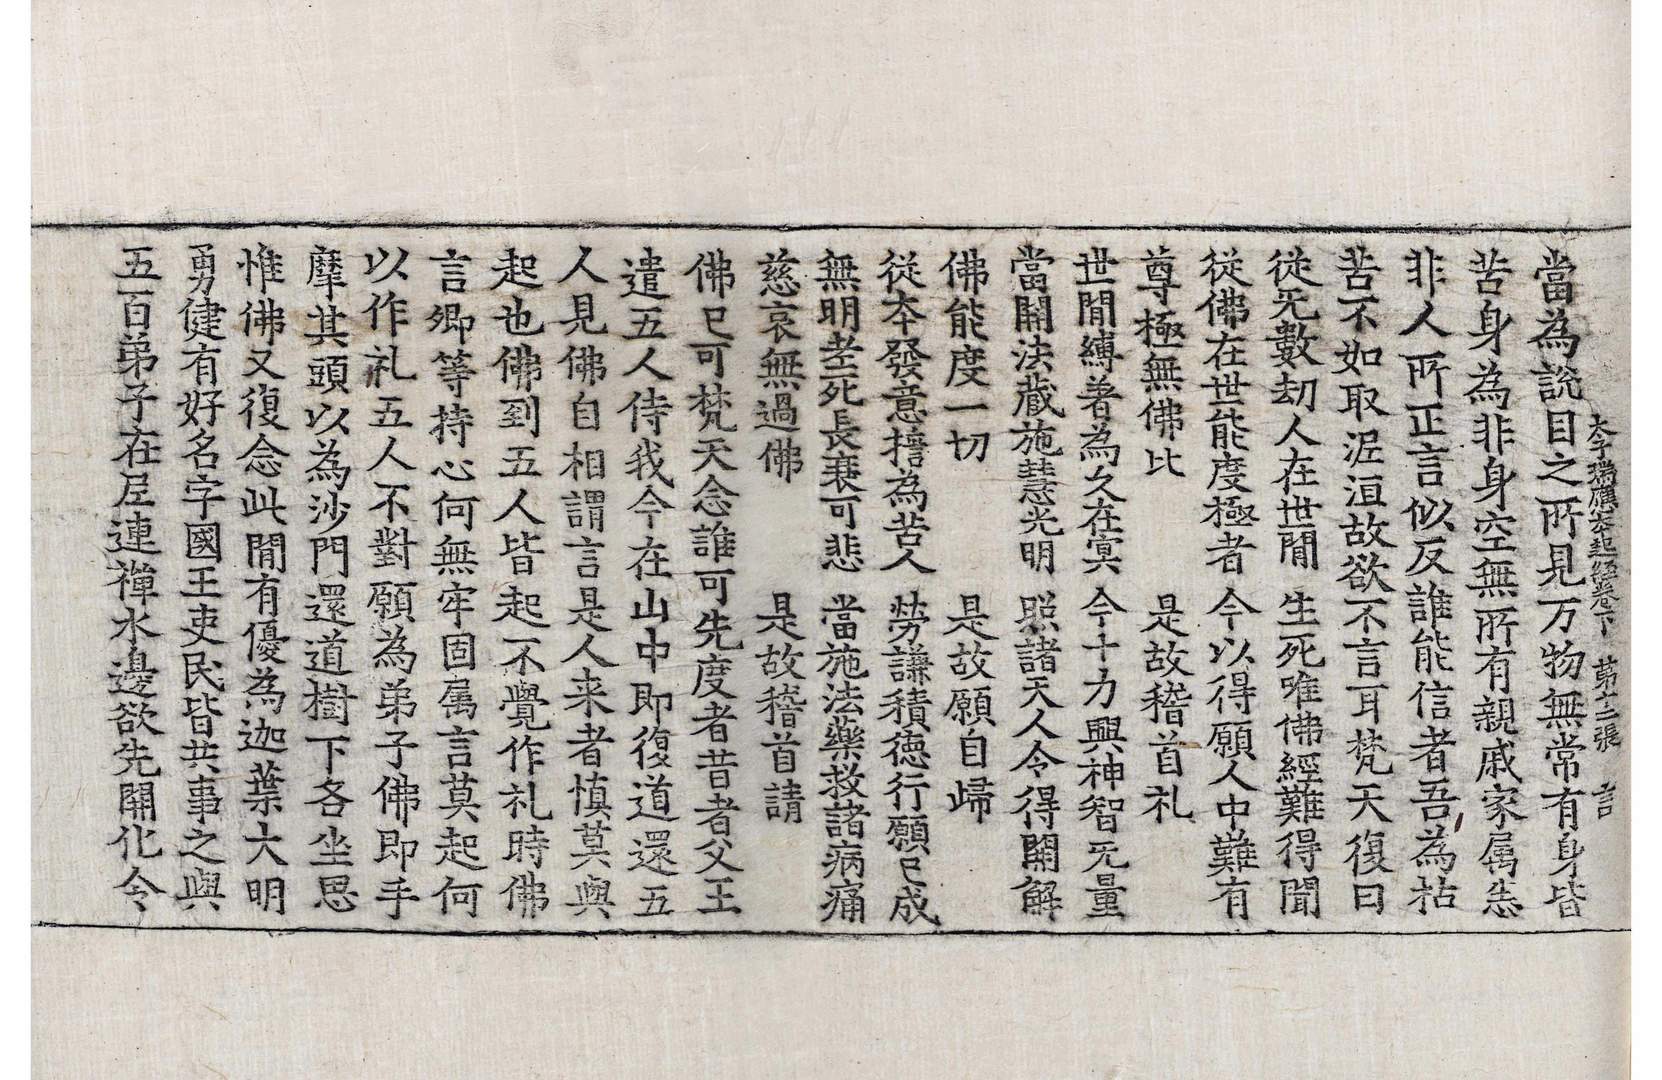 太子瑞應本起經卷下　第十二張　言
當為說目之所見万物無常有身皆
苦身為非身空無所有親戚家属悉
非人所正言似反誰能信者吾為枯
苦不如取泥洹故欲不言耳梵天復曰
從无數劫人在世閒　生死唯佛經難得聞
從佛在世能度極者　今以得願人中難有
尊極無佛比　是故稽首礼
世閒縛著為久在㝠　今十力興神智无量
當開法藏施慧光明　照諸天人令得開解
佛能度一切　是故願自歸
從本發意擔為苦人　勞謙積德行願已成
無明老死長衰可悲　當施法藥救諸病痛
慈哀無過佛　是故稽首請
佛已可梵天念誰可先度者昔者父王
遣五人侍我今在山中即復道還五
人見佛自相謂言是人来者慎莫與
起也佛到五人皆起不覺作礼時佛
言卿等持心何無牢固属言莫起何
以作礼五人不對願為弟子佛即手
摩其頭以為沙門還道樹下各坐思
惟佛又復念此閒有優為迦葉大明
勇健有好名字國王吏民皆共事之與
五百弟子在尼連禪水邊欲先開化令